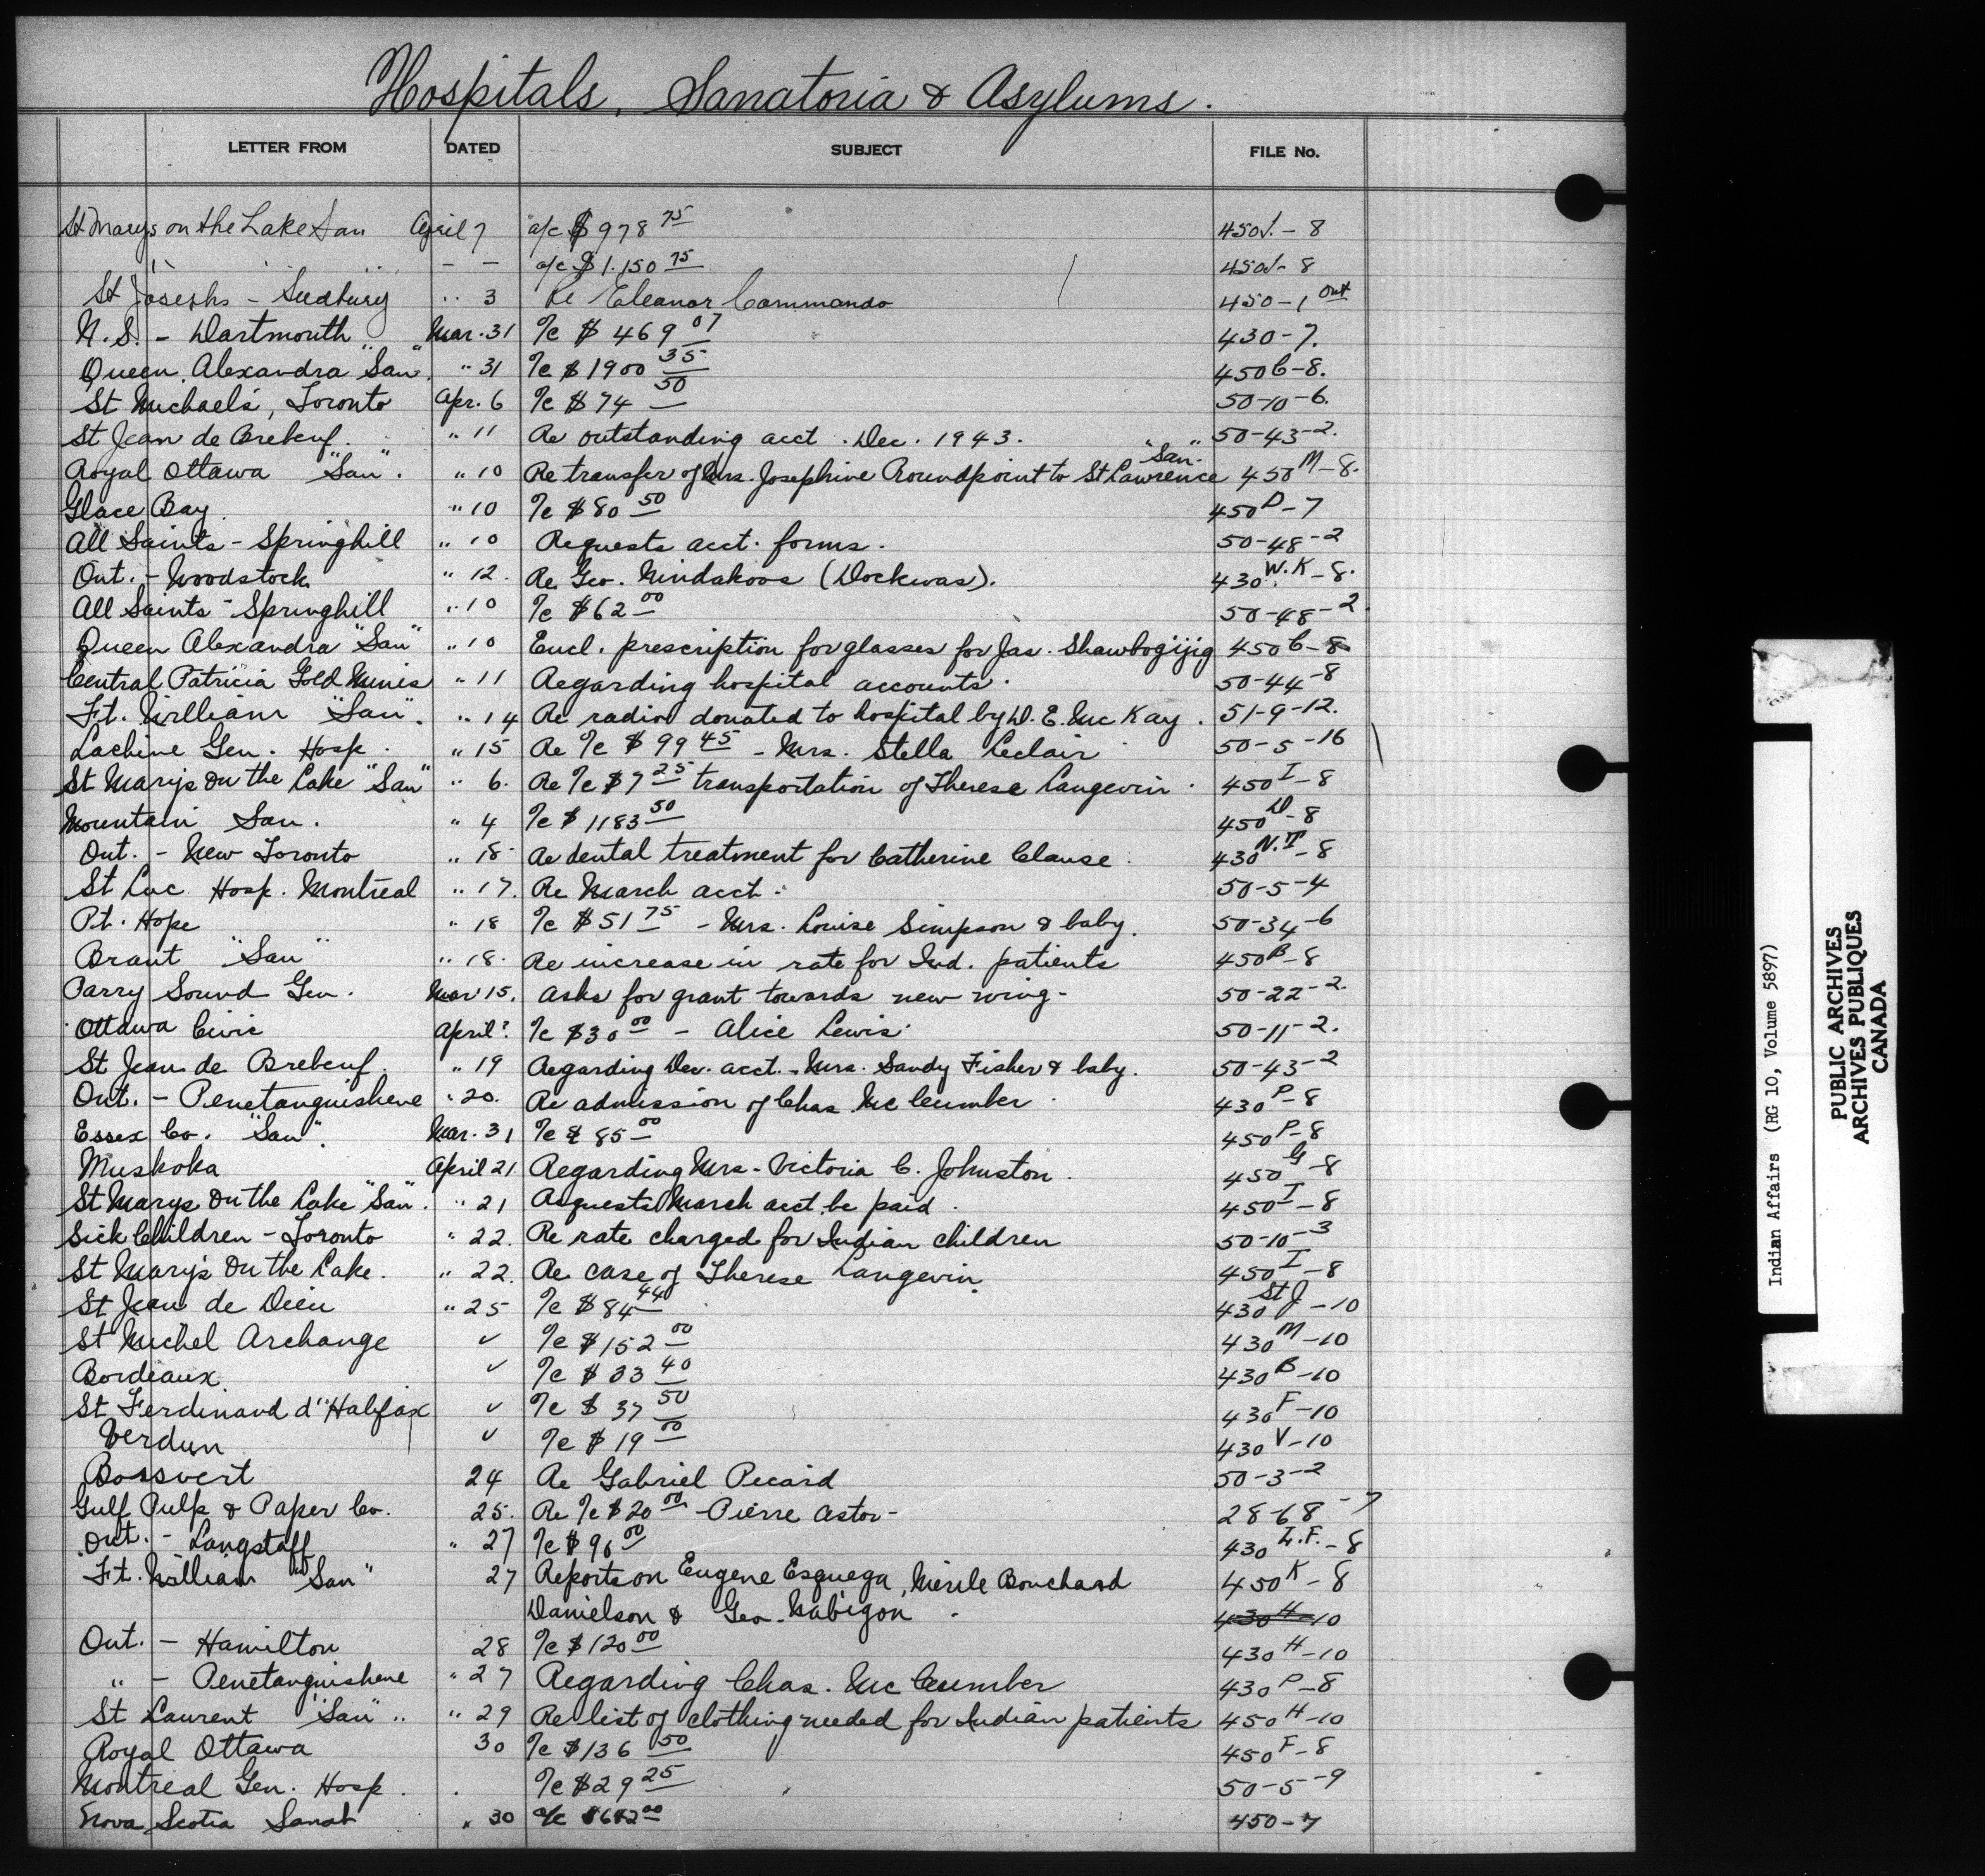 Hospitals, Sanatoria & Asylums.
LETTER FROM DATED SUBJECT FILE No.
St Marys on the Lake San April 7 a/c $978 75 450I.-8
" - - a/c $1.150 75 450I-8
St Josephs - Sudbury " 3 Re Eleanor Commando 450-1 Ont
N.S. - Dartmouth Mar. 31 %c $469 07 430-7.
Queen Alexandra "San". " 31 %c $1900 35 450C-8.
St Michael's, Toronto Apr. 6 %c $74 50 50-10-6.
St Jean de Brebeuf. " 11 Re outstanding acct. Dec. 1943. 50-43-2.
Royal Ottawa "San". " 10 Re transfer of Mrs. Josephine Roundpoint to St Lawrence "San." 450M-8.
Glace Bay. " 10 %c $80 50 450D-7
All Saints - Springhill " 10 Requests acct. forms. 50-48-2
Ont. - Woodstock " 12. Re Geo. Nindakoos (Dockwas). 430W.K-8.
All Saints - Springhill " 10 %c $62 00 50-48-2.
Queen Alexandra "San" " 10 Encl. prescription for glasses for Jas. Shawbogijig 450C-8
Central Patricia Gold Mines " 11 Regarding hospital accounts. 50-44-8
Ft. William "San". " 14 Re radio donated to hospital by D. E. McKay. 51-9-12.
Lachine Gen. Hosp. " 15 Re %c $99 45 - Mrs. Stella Leclair 50-5-16
St Mary's On the Lake "San" " 6. Re %c $7 25 transportation of Therese Langevin. 450I-8
Mountain San. " 4 %c $1183 50 450D-8
Ont. - New Toronto " 18 Re dental treatment for Catherine Clause. 430N.T-8
St Luc Hosp. Montreal " 17. Re March acct. 50-5-4
Pt. Hope " 18 %c $51 75 - Mrs. Louise Simpson & baby. 50-34-6
Brant "San" " 18. Re increase in rate for Ind. patients 450B-8
Parry Sound Gen. Mar 15. Asks for grant towards new wing- 50-22-2.
Ottawa Civic April? %c $30 00 - Alice Lewis. 50-11-2.
St Jean de Brebeuf. " 19 Regarding Dec. acct. - Mrs. Sandy Fisher & baby. 50-43-2
Ont. - Penetanguishene " 20. Re admission of Chas. McCumber. 430P-8
Essex Co. "San". Mar. 31 %c $85 00 450P-8
Muskoka April 21 Regarding Mrs. Victoria C. Johnston. 450G-8
St Marys On the Lake "San". " 21 Requests March acct. be paid. 450I-8
Sick Children - Toronto " 22. Re rate charged for Indian children 50-10-3
St Mary's On the Lake. " 22. Re case of Therese Langevin. 450I-8
St Jean de Dieu " 25 %c $84 44 430St J-10
St Michel Archange ✓ %c $152 00 430M-10
Bordeaux. ✓ %c $33 40 430B-10
St Ferdinand d'Halifax ✓ %c $37 50 430F-10
Verdun ✓ %c $19 00 430V-10
24 Re Gabriel Picard 50-3-2
Gulf Pulp & Paper Co. 25. Re %c $20 00 - Pierre Astor - 28-68-7
Ont. - Langstaff " 27 %c $96 00 430L.F.-8
Ft. William "San" 27 Reports on Eugene Esquega, Merle Bouchard 450K-8
Danielson & Geo. Nabigon. 430H-10
Ont. - Hamilton 28 %c $120 00 430H-10
" - Penetanguishene " 27 Regarding Chas. McCumber 430P-8
St Laurent "San" " 29 Re list of clothing needed for Indian patients 450H-10
Royal Ottawa 30 %c $136 50 450F-8
Montreal Gen. Hosp. %c $29 25 50-5-9
Nova Scotia Sanat " 30 a/c 450-7
Indian Affairs (RG 10, Volume 5897)
PUBLIC ARCHIVES
ARCHIVES PUBLIQUES
CANADA